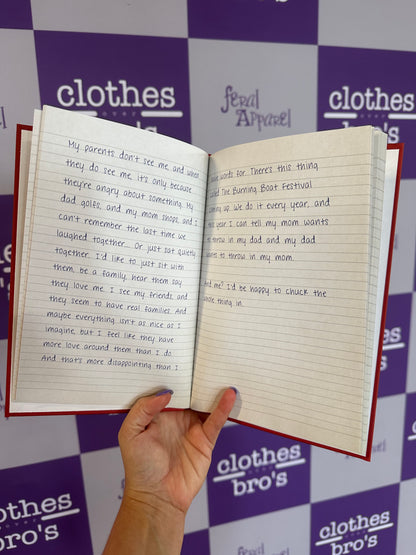 clothes
OVER
bro's
Feral Apparel
clothes
OVER
bro's
My parents don't see me, and when
they do see me, it's only because
they're angry about something. My
dad golfs, and my mom shops, and I
can't remember the last time we
laughed together... Or just sat quietly
together. I'd like to just sit with
them, be a family, hear them say
they love me. I see my friends, and
they seem to have real families. And
maybe everything isn't as nice as I
imagine, but I feel like they have
more love around them than I do.
And that's more disappointing than I
have words for. There's this thing
called The Burning Boat Festival
coming up. We do it every year, and
this year I can tell my mom wants
to throw in my dad and my dad
wants to throw in my mom.
And me? I'd be happy to chuck the
whole thing in.
clothes
OVER
bro's
clothes
OVER
bro's
Feral Apparel
clothes
OVER